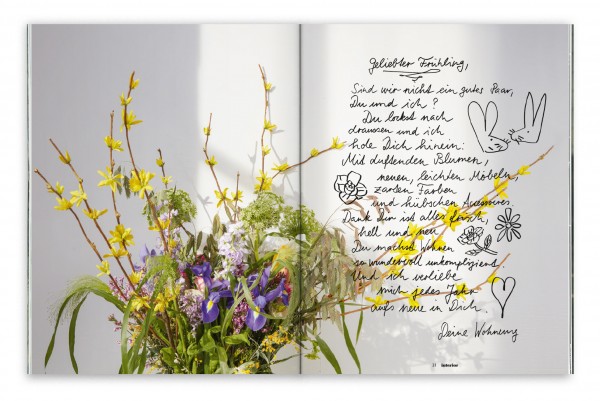 Geliebter Frühling,
Sind wir nicht ein gutes Paar,
Du und ich?
Du lockst nach
draussen und ich
hole Dich hinein:
Mit duftenden Blumen,
neuen, leichten Möbeln,
zarten Farben
und hübschen Accessoires.
Dank Dir ist alles frisch,
hell und neu
Du machst Wohnen
so wundervoll unkompliziert.
Und ich verliebe
mich jedes Jahr
aufs neue in Dich.
Deine Wohnung